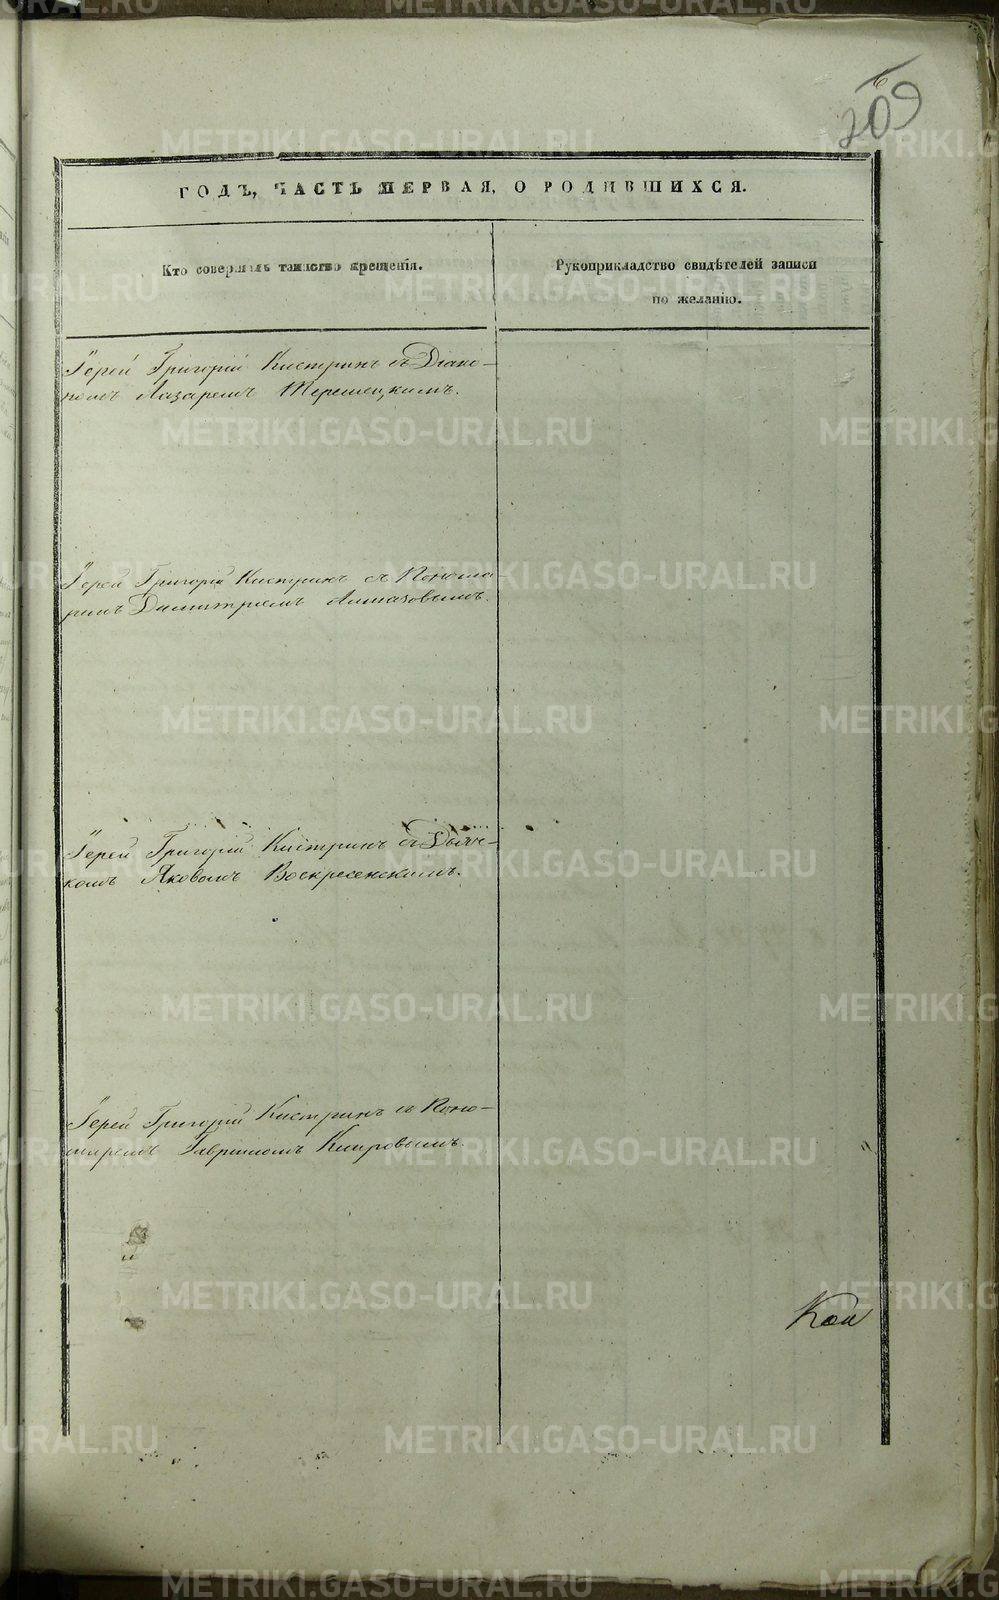 209
ГОДЪ, ЧАСТЬ ПЕРВАЯ, О РОДИВШИХСЯ.
Кто совершалъ таинство крещенія.
Рукоприкладство свидѣтелей записи
по желанію.
Іерей Григорій Кистринъ съ Діако-
номъ Лазаремъ Терешецкимъ.
Іерей Григорій Кистринъ съ Понома-
ремъ Димитріемъ Алмазовымъ.
Іерей Григорій Кистринъ съ Дьяч-
комъ Яковомъ Воскресенскимъ.
Іерей Григорій Кистринъ съ Поно-
маремъ Гавріиломъ Кипровымъ.
METRIKI.GASO-URAL.RU